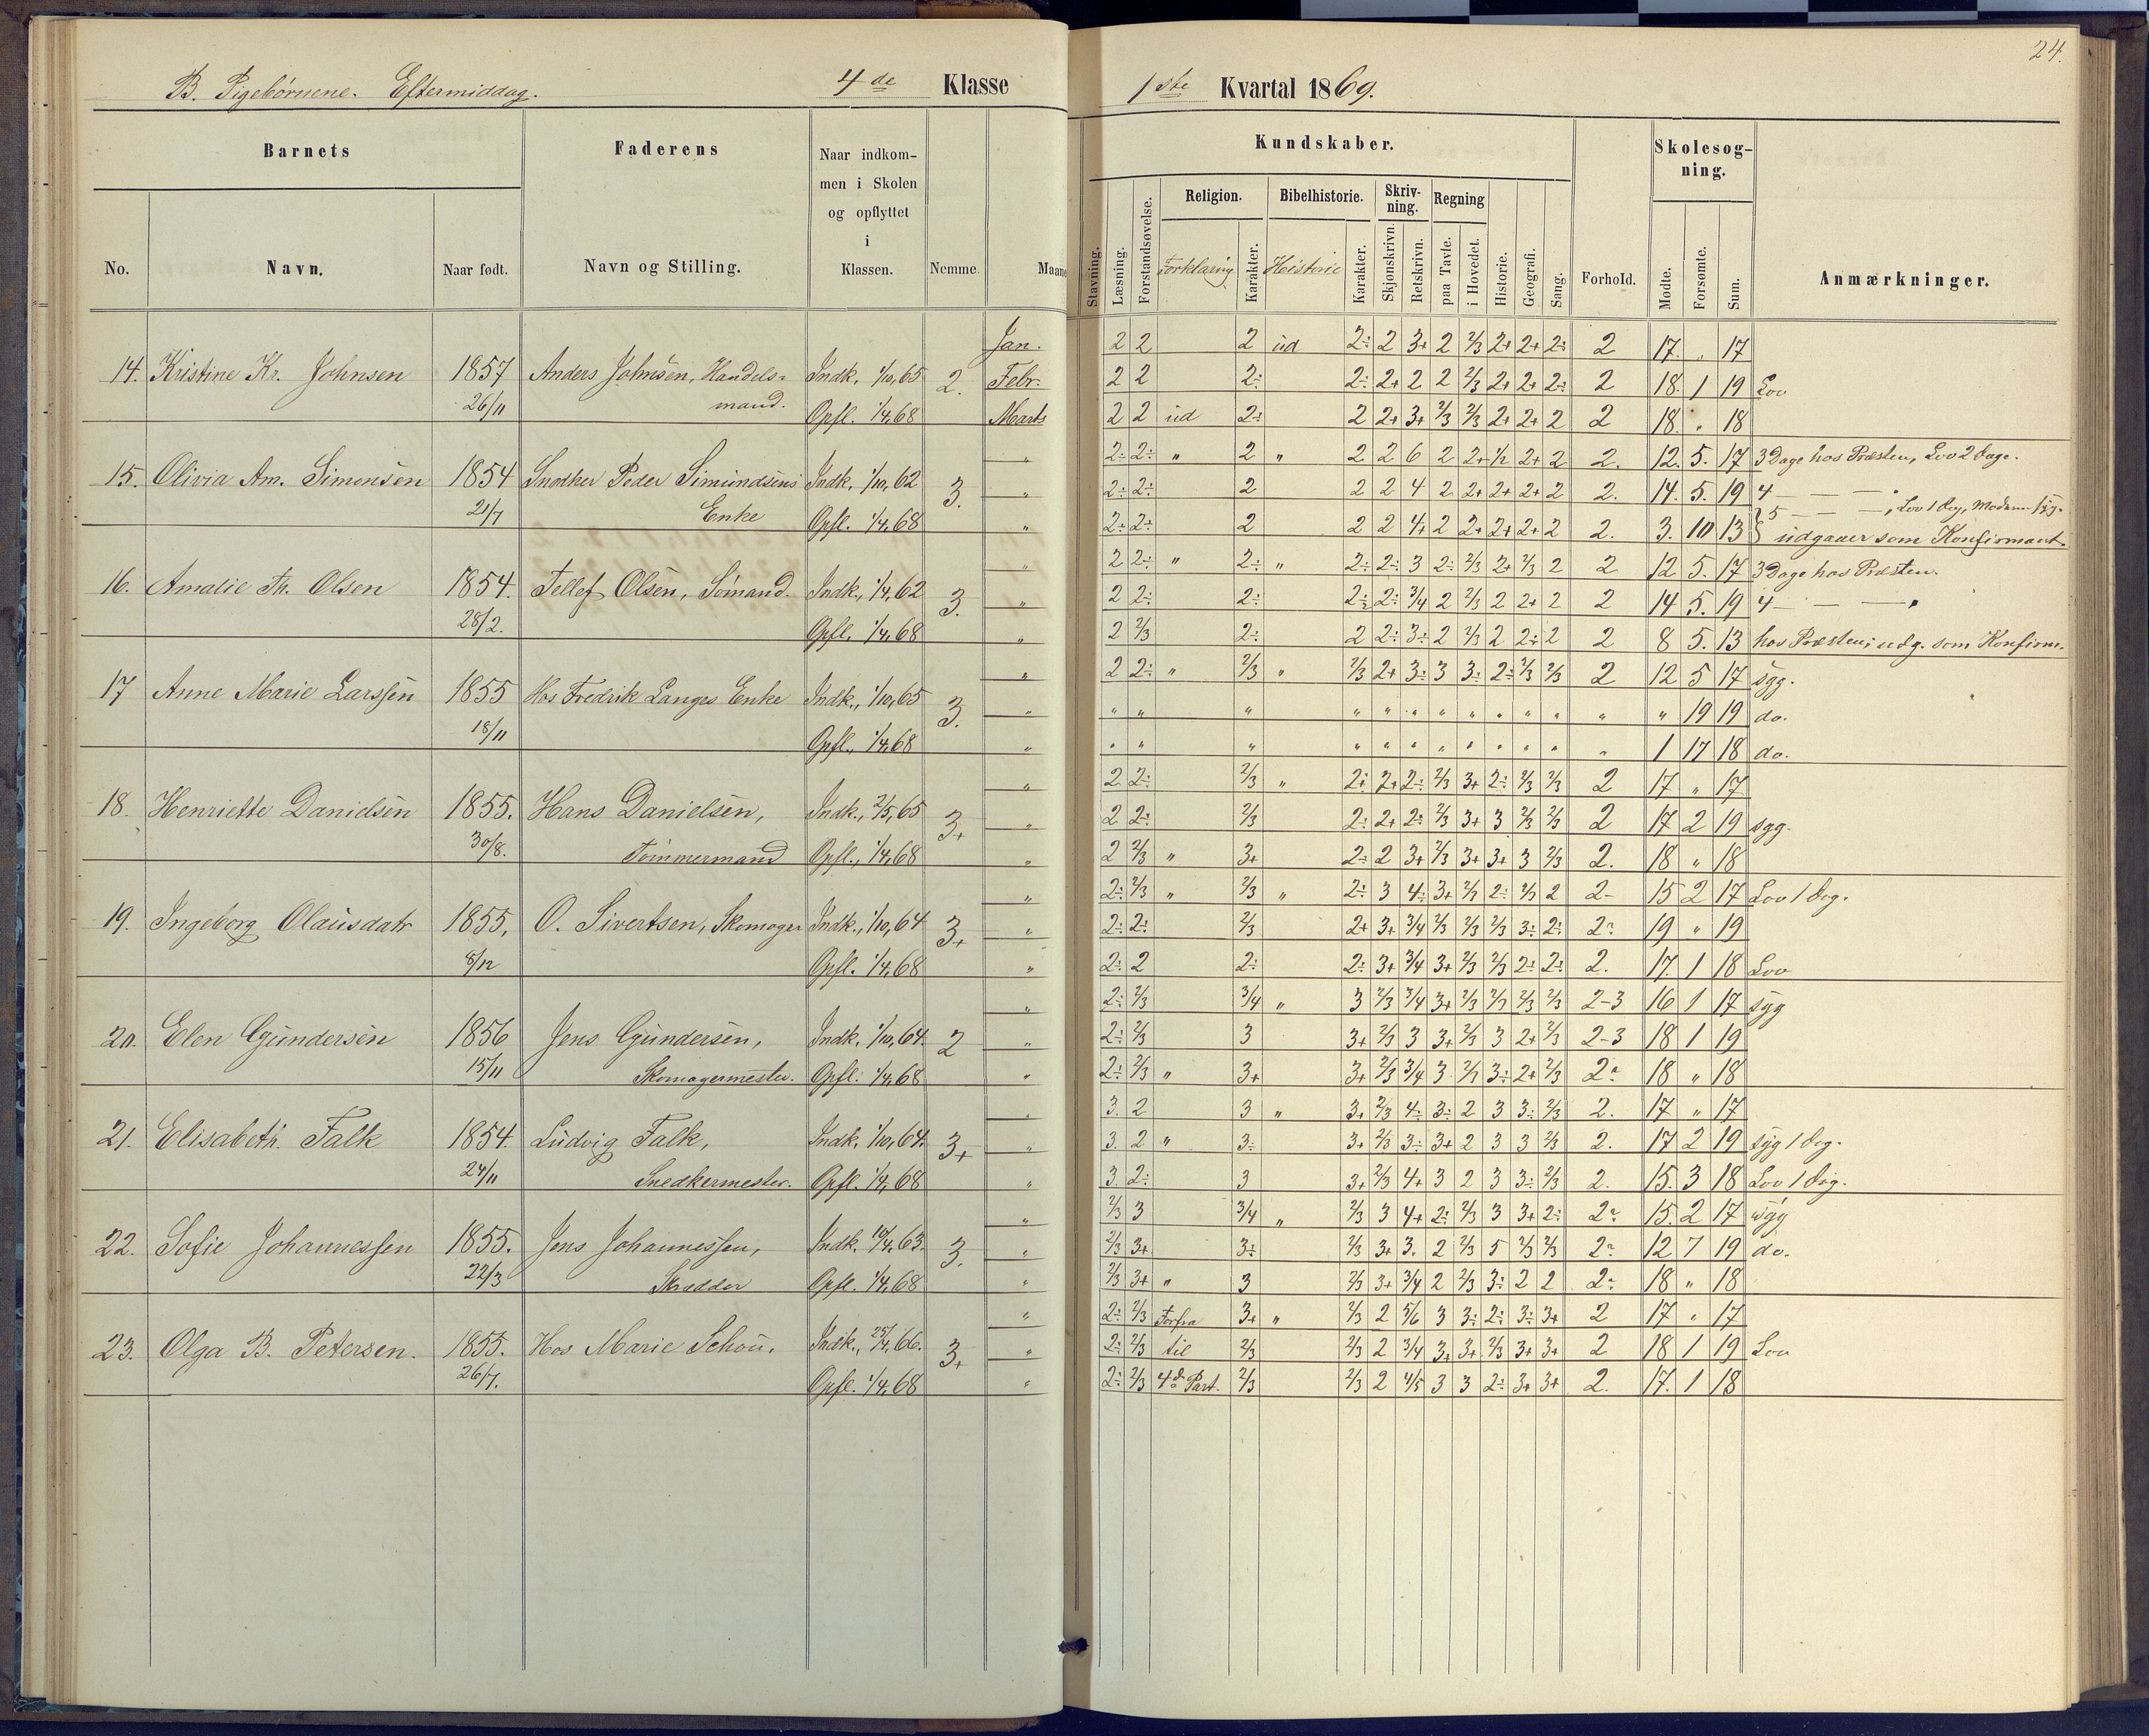 24.
B. Pigebørnene. Eftermiddag. 4de Klasse
1ste Kvartal 1869.
Barnets
Faderens
Naar indkom-
men i Skolen
og opflyttet
i
Klassen.
No. Navn. Naar født. Navn og Stilling. Nemme. Maane
Kundskaber.
Skolesøg-
ning.
Religion. Bibelhistorie. Skriv-
ning. Regning
Stavning. Læsning. Forstandsøvelse. Forklaring Karakter. Historie Karakter. Skjønskrivn. Retskrivn. paa Tavle. i Hovedet. Historie. Geografi. Sang. Forhold. Mødte. Forsømte. Sum. Anmærkninger.
Jan. 2 2 2 ud 2÷ 2 3+ 2 2/3 2+ 2+ 2÷ 2 17. " 17
14. Kristine Kr. Johnsen 1857 Anders Johnsen, Handels- Indk. 1/10, 65 2. Febr. 2 2 2÷ 2÷ 2+ 2 2 2/3 2+ 2+ 2÷ 2 18. 1 19 Lov
26/11 mand. Opfl. 1/4, 68 Marts 2 2 ud 2÷ 2 2+ 3+ 2/3 2/3 2+ 2+ 2 2 18. " 18
" 2÷ 2÷ " 2 " 2 2 6 2 2+ 1/2 2+ 2 2. 12. 5. 17 3 Dage hos Præsten, Lov 2 Dage.
15. Olivia Am. Simonsen 1854 Snedker Peder Simundsens Indk. 1/10, 62 3. " 2÷ 2÷ 2 2 2 4 2 2+ 2+ 2+ 2 2. 14. 5. 19 4 — — "
21/7 Enke Opfl. 1/4, 68 " 2÷ 2÷ 2 2 2 4+ 2 2+ 2+ 2+ 2 2. 3. 10 13 5 — — , Lov 1 Dag, Moderen syg.
udgaaer som Konfirmant
" 2 2÷ " 2÷ " 2÷ 2÷ 3 2÷ 2/3 2+ 2/3 2 2 12 5. 17 3 Dage hos Præsten.
16. Amalie Th. Olsen 1854. Tellef Olsen, Sømand. Indk., 1/4, 62 3. " 2 2÷ 2÷ 2÷ 2÷ 3/4 2 2/3 2 2+ 2 2 14 5. 19 4 — — "
28/2. Opfl. 1/4, 68 " 2 2/3 2÷ 2 2÷ 3÷ 2 2/3 2 2÷ 2 2 8 5. 13 hos Præsten; udg. som Konfirm.
" 2 2÷ " 2/3 " 2/3 2+ 3÷ 3 3÷ 2÷ 2/3 2/3 2 12 5 17 syg.
17 Anne Marie Larssen 1855 Hos Fredrik Langes Enke Indk., 1/10, 65 3. " " " " " " " " " " " " " " 19 19 do.
18/11 Opfl., 1/4, 68 " " " " " " " " " " " " " 1 17 18 do.
" 2 2÷ 2/3 " 2÷ 2+ 2÷ 2/3 3+ 2÷ 2/3 2/3 2 17 " 17
18. Henriette Danielsen 1855. Hans Danielsen, Indk., 2/5, 65 3+ " 2 2÷ 2/3 2÷ 2+ 2÷ 2/3 3+ 3 2/3 2/3 2 17 2 19 syg.
30/8. Tømmermand Opfl., 1/4, 68 " 2 2/3 " 3+ 2÷ 2 3+ 2/3 3+ 3+ 3 2/3 2. 18 " 18
" 2÷ 2/3 " 2/3 " 2÷ 3 4÷ 3+ 2/3 2÷ 2/3 2 2- 15 2 17 Lov 1 Dag.
19. Ingeborg Olausdatr 1855, O. Sivertsen, Skomager Indk., 1/10, 64 3+ " 2÷ 2÷ 2/3 2+ 3+ 3/4 2/3 2/3 2/3 3÷ 2÷ 2÷ 19 " 19
8/12 Opfl. 1/4, 68 " 2÷ 2 2÷ 2÷ 3+ 3/4 3+ 2/3 2/3 2÷ 2÷ 2. 17. 1 18 Lov
" 2÷ 2/3 3/4 " 3 2/3 3/4 3+ 2/3 2/3 2/3 2/3 2-3 16 1 17 syg
20. Elen Gundersen 1856 Jens Gundersen, Indk. 1/10, 64 2 " 2÷ 2/3 3 3+ 2/3 3 3+ 2/3 3 2+ 2/3 2-3 18 1 19
15/11 Skomagermester. Opfl. 1/4, 68 " 2÷ 2/3 " 3+ 3+ 2/3 3/4 3 2/3 3÷ 2+ 2/3 2÷ 18 " 18
" 3. 2 3 " 3+ 2/3 4÷ 3÷ 2 3 3÷ 2/3 2. 17 " 17
21. Elisabeth Falk 1854. Ludvig Falk, Indk. 1/10, 64 3+ " 3. 2 " 3÷ 3+ 2/3 3÷ 3+ 2 3 3 2/3 2. 17 2 19 syg 1 Dag.
24/11 Snedkermester. Opfl. 1/4, 68 " 3. 2÷ 3 3+ 2/3 4+ 3 2 3 3÷ 2/3 2. 15. 3 18 Lov 1 Dag.
" 2/3 3 3/4 " 2/3 3 4+ 2÷ 2/3 3 3+ 2÷ 2÷ 15. 2 17 syg
22. Sofie Johannessen 1855. Jens Johannessen, Indk. 10/4, 63. 3. " 2/3 3+ 3÷ 2/3 3+ 3. 2 2/3 5 2/3 2/3 2÷ 12 7 19 do.
22/3 Skrædder Opfl. 1/4, 68 " 2/3 3+ " 3 2/3 3+ 3/4 2 2/3 3÷ 2 2 2÷ 18 " 18
" 2÷ 2/3 Forfra 3+ " 2/3 2 5/6 3 3÷ 2÷ 3÷ 3+ 2 17 " 17
23. Olga B. Petersen. 1855. Hos Marie Schou. Indk., 25/4, 66. 3+ " 2÷ 2/3 til 2/3 2/3 2 3/4 3+ 3+ 2/3 3+ 3+ 2 18 1 19 Lov
26/7. Opfl. 1/4, 68 " 2÷ 2/3 4de Part. 2/3 2/3 2 4/5 3 3 2÷ 3+ 3+ 2. 17. 1 18